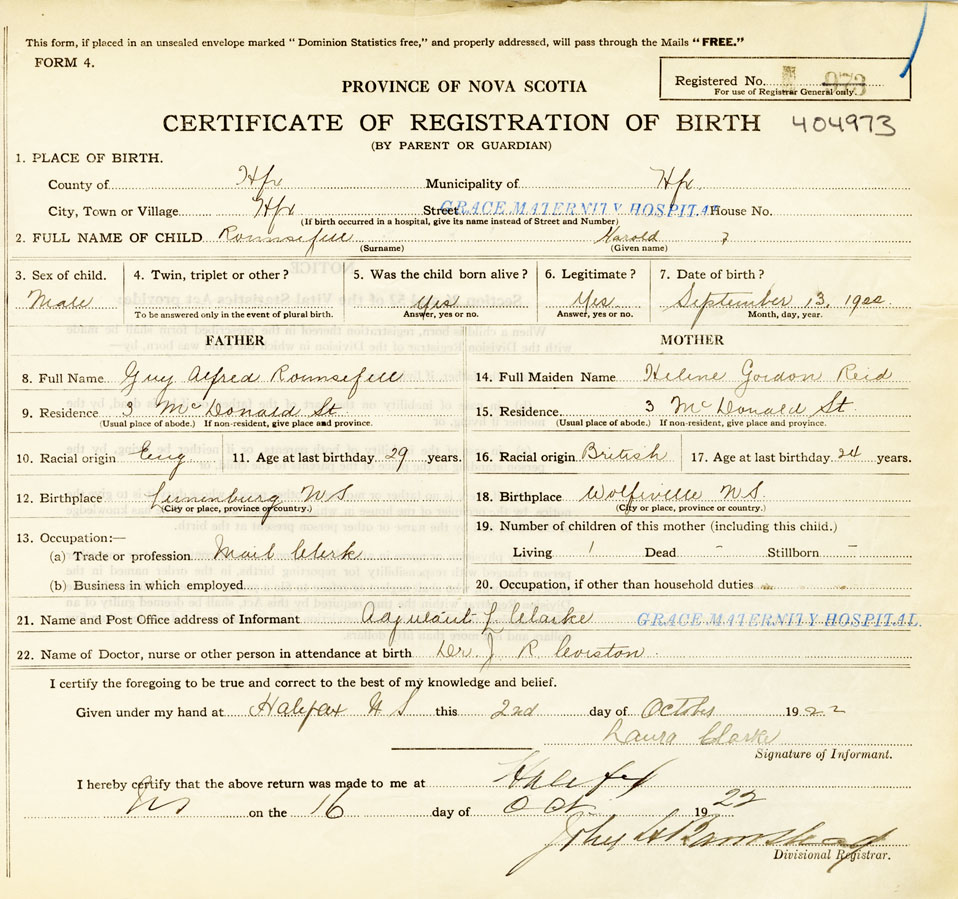 This form, if placed in an unsealed envelope marked “Dominion Statistics free,” and properly addressed, will pass through the Mails “FREE.”
FORM 4.
Registered No. 973
For use of Registrar General only.
PROVINCE OF NOVA SCOTIA
CERTIFICATE OF REGISTRATION OF BIRTH 404973
(BY PARENT OR GUARDIAN)
1. PLACE OF BIRTH.
County of Hfx Municipality of Hfx
City, Town or Village Hfx Street GRACE MATERNITY HOSPITAL House No.
(If birth occurred in a hospital, give its name instead of Street and Number)
2. FULL NAME OF CHILD Rounsefell Harold
(Surname) (Given name)
3. Sex of child. 4. Twin, triplet or other? 5. Was the child born alive? 6. Legitimate? 7. Date of birth?
Male Yes Yes September 13, 1922
To be answered only in the event of plural birth. Answer, yes or no. Answer, yes or no. Month, day, year.
FATHER MOTHER
8. Full Name Guy Alfred Rounsefell 14. Full Maiden Name Helene Gordon Reid
9. Residence 3 McDonald St 15. Residence 3 McDonald St.
(Usual place of abode.) If non-resident, give place and province. (Usual place of abode.) If non-resident, give place and province.
10. Racial origin Eng 11. Age at last birthday 29 years. 16. Racial origin British 17. Age at last birthday 24 years.
12. Birthplace Lunenburg N S 18. Birthplace Wolfville N S.
(City or place, province or country.) (City or place, province or country.)
13. Occupation:— 19. Number of children of this mother (including this child.)
(a) Trade or profession Mail Clerk Living 1 Dead - Stillborn -
(b) Business in which employed 20. Occupation, if other than household duties
21. Name and Post Office address of Informant Adjutant L Clarke GRACE MATERNITY HOSPITAL.
22. Name of Doctor, nurse or other person in attendance at birth Dr. J R Corston.
I certify the foregoing to be true and correct to the best of my knowledge and belief.
Given under my hand at Halifax N S this 2nd day of October 1922
Laura Clarke
Signature of Informant.
I hereby certify that the above return was made to me at Halifax
NS on the 16 day of Oct 1922
John H Barnstead
Divisional Registrar.